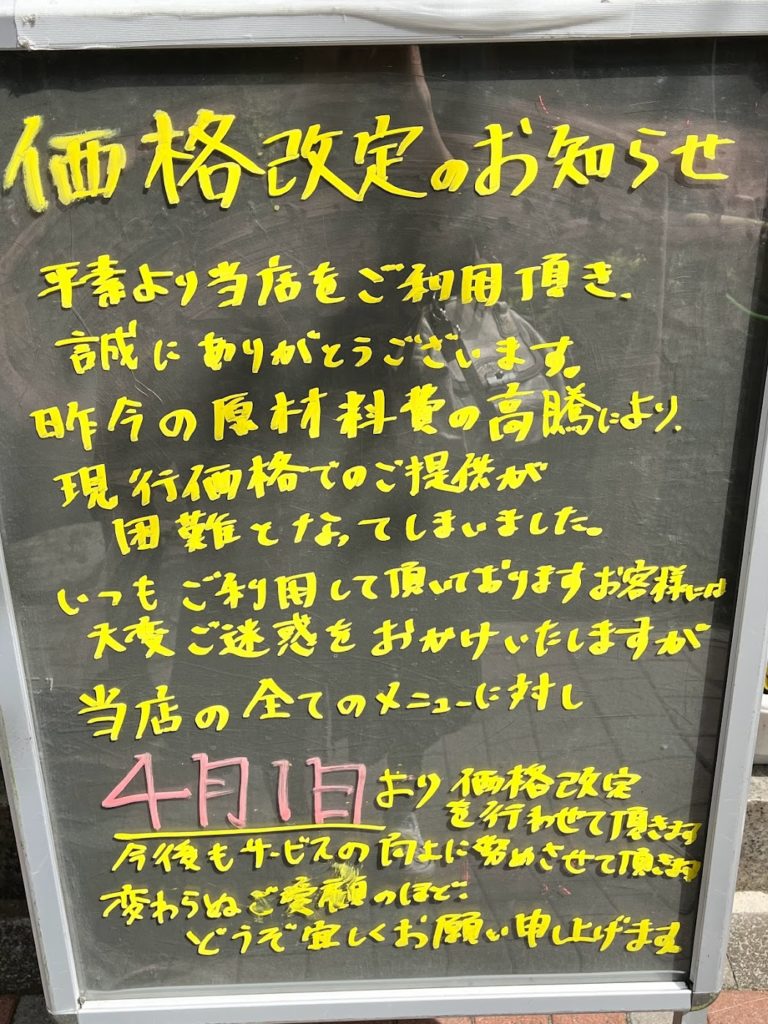 価格改定のお知らせ
平素より当店をご利用頂き、
誠にありがとうございます。
昨今の原材料費の高騰により、
現行価格でのご提供が
困難となってしまいました。
いつもご利用して頂いておりますお客様には
大変ご迷惑をおかけいたしますが
当店の全てのメニューに対し
4月1日より価格改定
を行わせて頂きます
今後もサービスの向上に努めさせて頂きます
変わらぬご愛顧のほど、
どうぞ宜しくお願い申し上げます